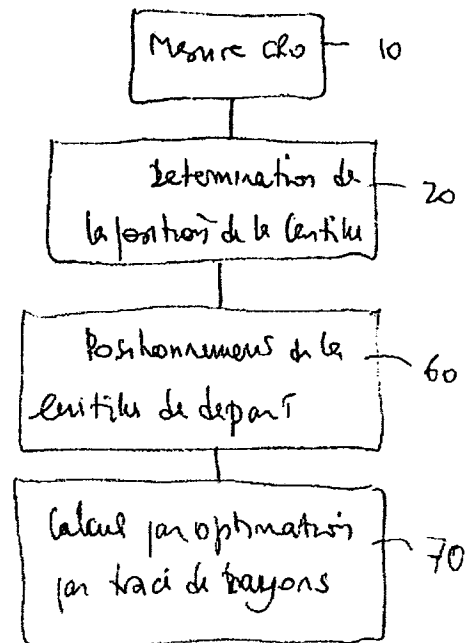 Mesure CRO 10
Determination de
la position de la lentille 20
Positionnement de la
lentille de depart 60
Calcul par optimation
par tracé de rayons 70